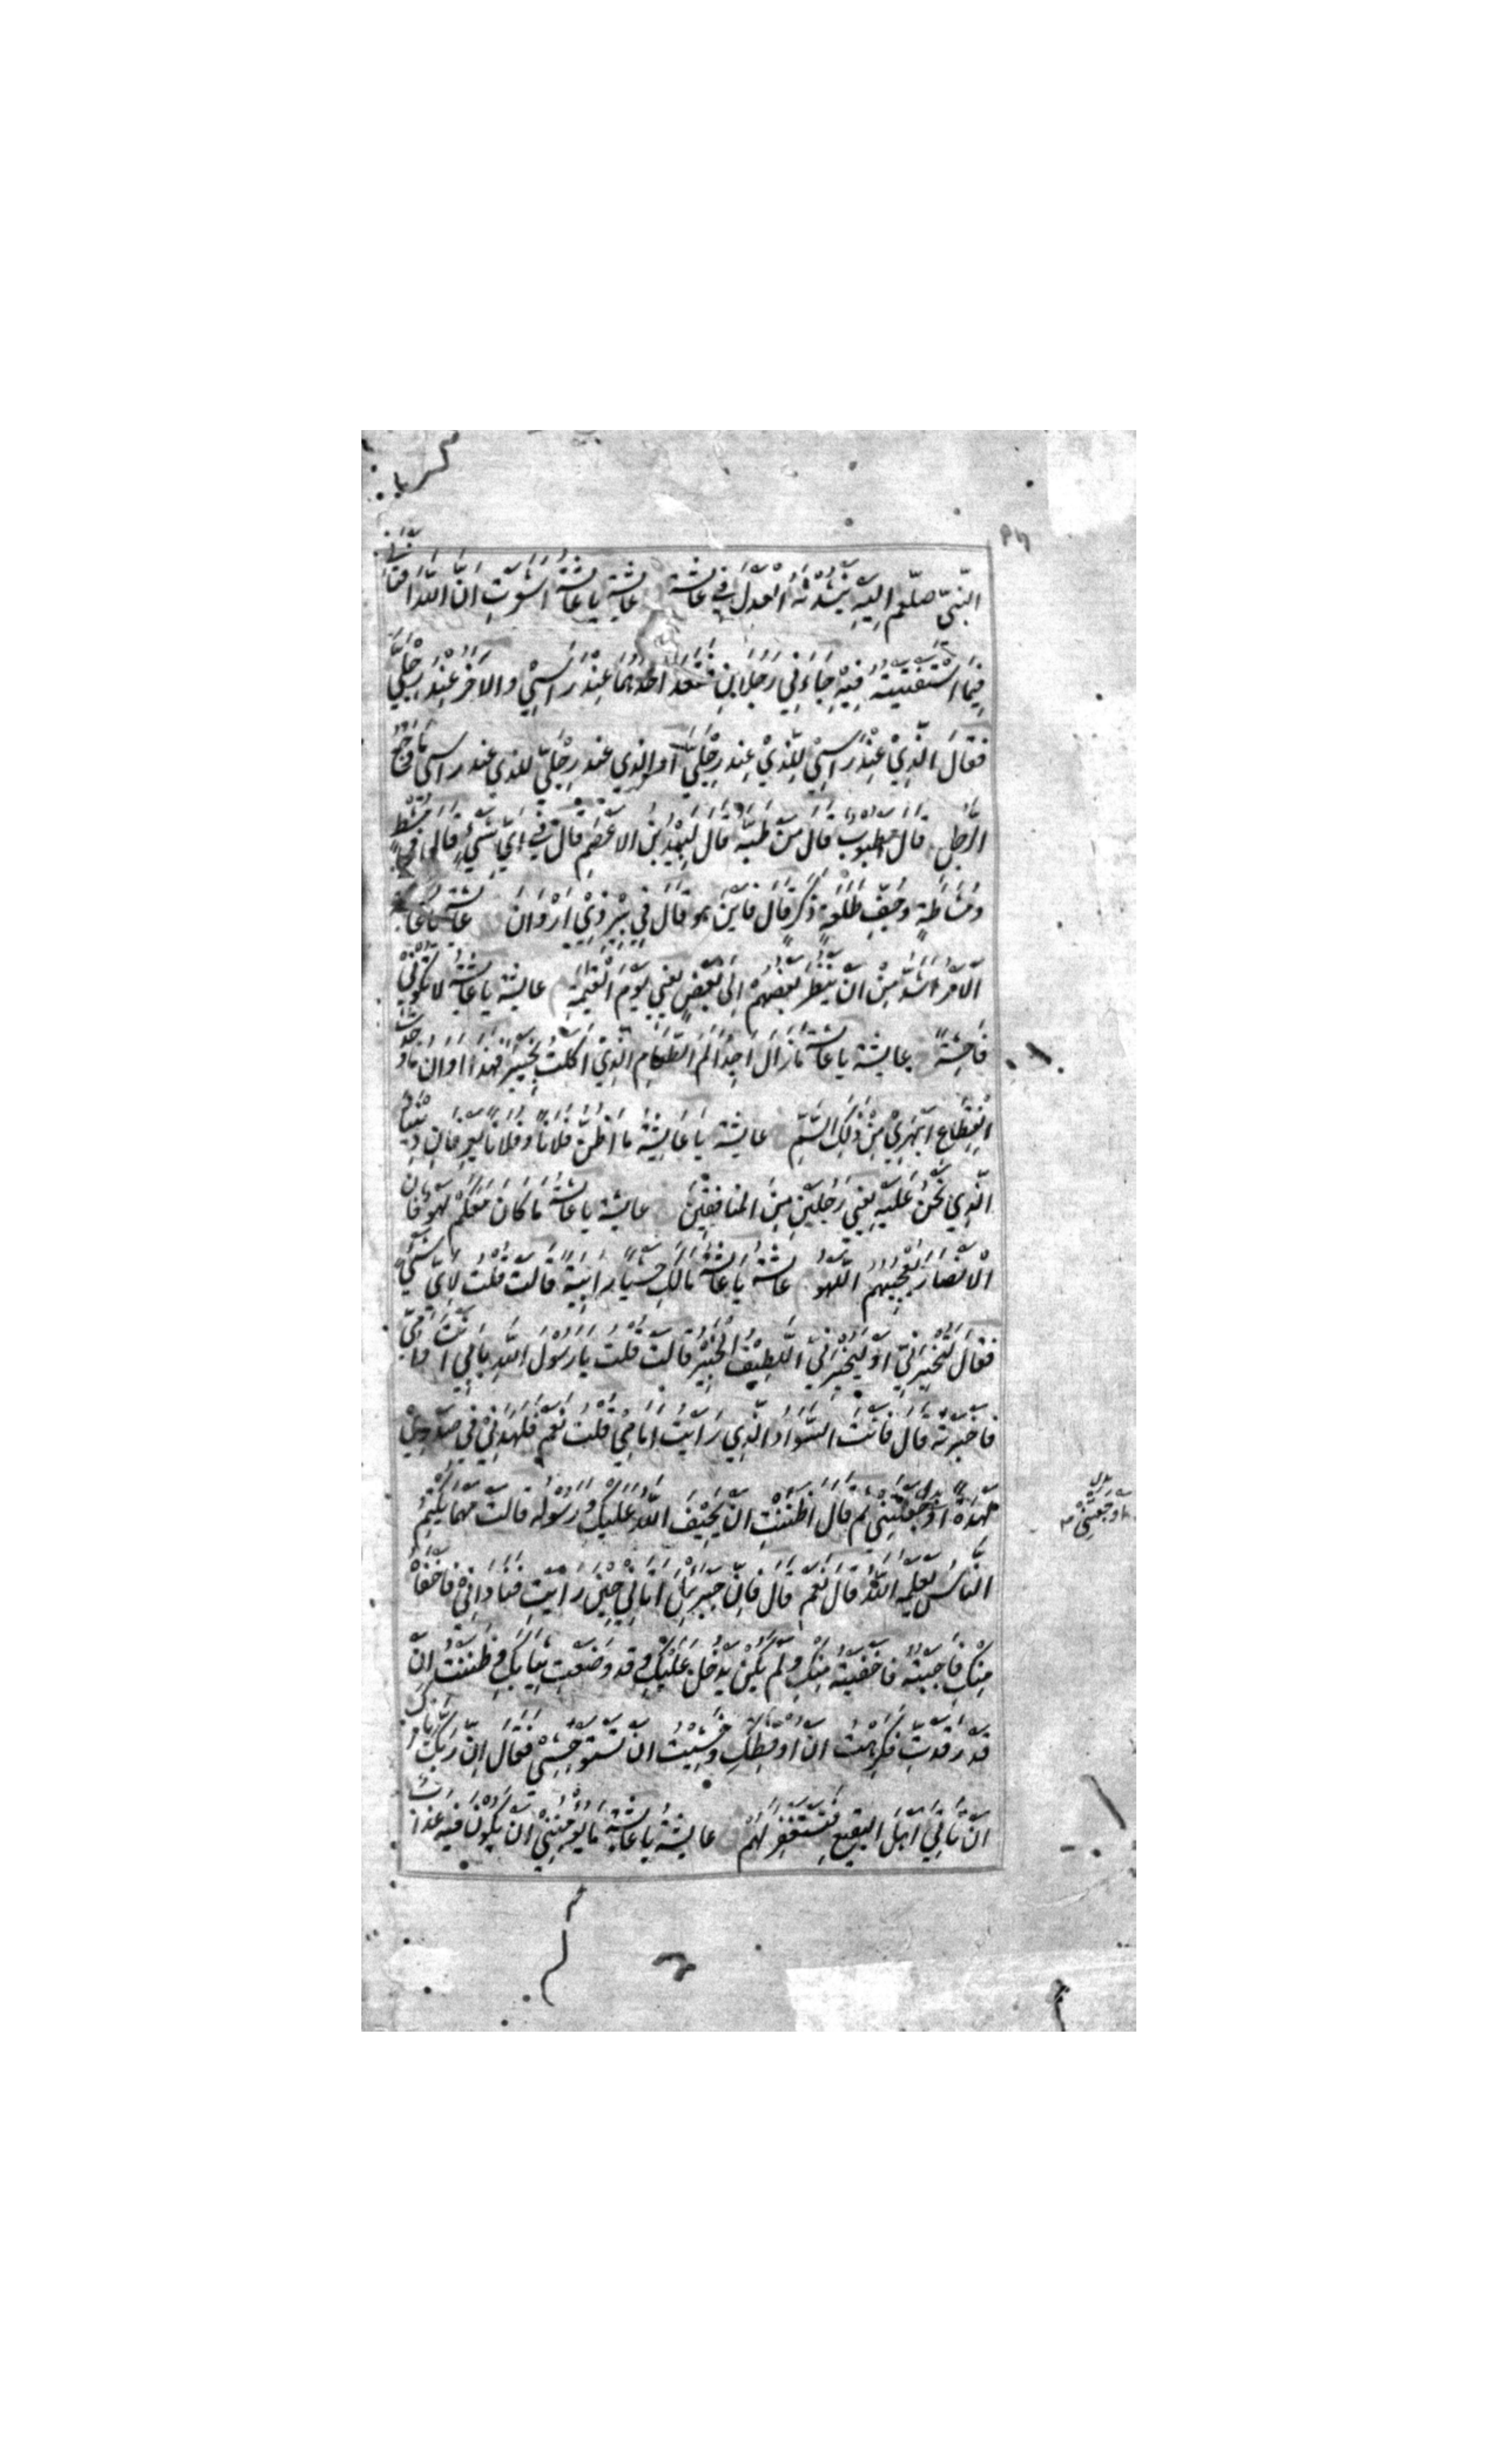 النَّبِيِّ صلعم اِلَيْهِ يَنْشُدْنَهُ الْعَدْلَ فِي عَائِشَةَ عايشة يا عَائِشَةُ اَشَعَرْتِ اَنَّ اللّٰهَ اَفْتَانِي
فِيمَا اسْتَفْتَيْتُهُ فِيْهِ جَاءَنِي رَجُلَانِ فَقَعَدَ اَحَدُهُمَا عِنْدَ رَاسِيْ وَالاَخَرُ عِنْدَ رِجْلَيَّ
فَقَالَ الَّذِيْ عِنْدَ رَاسِيْ لِلَّذِيْ عِنْدَ رِجْلَيَّ اَوِ الَّذِي عند رِجْلَيَّ للذي عند راسي مَا وَجَعُ
الرَّجُلِ قَالَ مَطْبُوبٌ قَالَ مَنْ طَبَّهُ قَالَ لَبِيْدُ بْنُ الاَعْصَمِ قَالَ فِي اَيِّ شَيْءٍ قَالَ فِي مُشْطٍ
وَمُشَاطَةٍ وَجُفِّ طَلْعَةٍ ذَكَرٍ قَالَ فَاَيْنَ هو قَالَ فِي بِيْرِ ذِيْ اَرْوَانَ عايشة يَا عَائِشَةُ
اَلْاَمْرُ اَشَدُّ مِنْ اَنْ يَنْظُرَ بَعْضُهُمْ اِلَى بَعْضٍ يَعْنِي يَوْمَ الْقِيٰمَةِ عايشة يا عَائِشَةُ لَا تَكُوْنِي
فَاحِشَةً عايشة يا عَائِشَةُ مَا زَالَ اَجِدُ اَلَمَ الطَّعَامِ الَّذِيْ اَكَلْتُ بِخَيْبَرَ فَهٰذَا اَوَانُ مَا وَجَدْتُ
انْقِطَاعَ اَبْهَرِيْ مِنْ ذٰلِكَ السَّمِّ عايشة يَا عَايِشَةُ مَا اَظُنُّ فُلَانًا وَفُلَانًا يَعْرِفَانِ دِيْنَنَا
الَّذِي نَحْنُ عَلَيْهِ يَعْنِي رَجُلَيْنِ مِنَ المنافِقِيْنَ عايشة يا عَائِشَةُ مَا كَانَ مَعَكُمْ لَهْوٌ فَاِنَّ
الْاَنْصَارَ يُعْجِبُهُمُ اللَّهْوُ عايشة يَا عَائِشَةُ مَالَكِ حَشْيَا رَابِيَةً قَالَتْ قُلْتُ لِاَيِّ شَيْءٍ
فَقَالَ لَتُخْبِرِنِّي اَوْ لَيُخْبِرَنِّي اللَّطِيْفُ الْخَبِيْرُ قَالَتْ قُلْتُ يَا رَسُوْلَ اللّٰهِ بِاَبِي اَنْتَ وَاُمِّي
فَاَخْبَرْتُهُ قَالَ فَاَنْتِ السَّوَادُ الَّذِي رَاَيْتُ اَمَامِيْ قُلْتُ نَعَمْ فَلَهَدَنِيْ فِي صَدْرِيْ
لَهْدَةً اَوْجَعَتْنِي ثم قَالَ اَظَنَنْتِ اَنْ يَحِيْفَ اللّٰهُ عَلَيْكِ وَرَسُوْلُهُ قَالَتْ مَهْمَا يَكْتُمِ
النَّاسُ يَعْلَمْهُ اللّٰهُ قَالَ نَعَمْ قَالَ فَاِنَّ جِبْرَئِيْلَ اَتَانِيْ حِيْنَ رَاَيْتِ فَنَادَانِيْ فَاَخْفَاهُ
مِنْكِ فَاَجَبْتُهُ فَاَخْفَيْتُهُ مِنْكِ وَلَمْ يَكُنْ يَدْخُلُ عَلَيْكِ وقد وَضَعْتِ ثِيَابَكِ وَظَنَنْتُ اَنْ
قَدْ رَقَدْتِ فَكَرِهْتُ اَنْ اُوْقِظَكِ وَخَشِيْتُ اَنْ تَسْتَوْحِشِيْ فَقَالَ اِنَّ رَبَّكَ يَامُرُكَ
اَنْ تَاتِيَ اَهْلَ الْبَقِيعِ فَتَسْتَغْفِرَ لَهُمْ عايشة يَا عَائِشَةُ مَا يُؤْمِنُنِي اَنْ يَكُوْنَ فِيْهِ عَذَابٌ